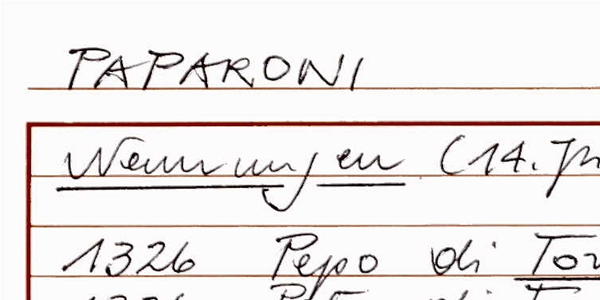 PAPARONI
Nennungen (14. Jh
1326 Pepo di Tor